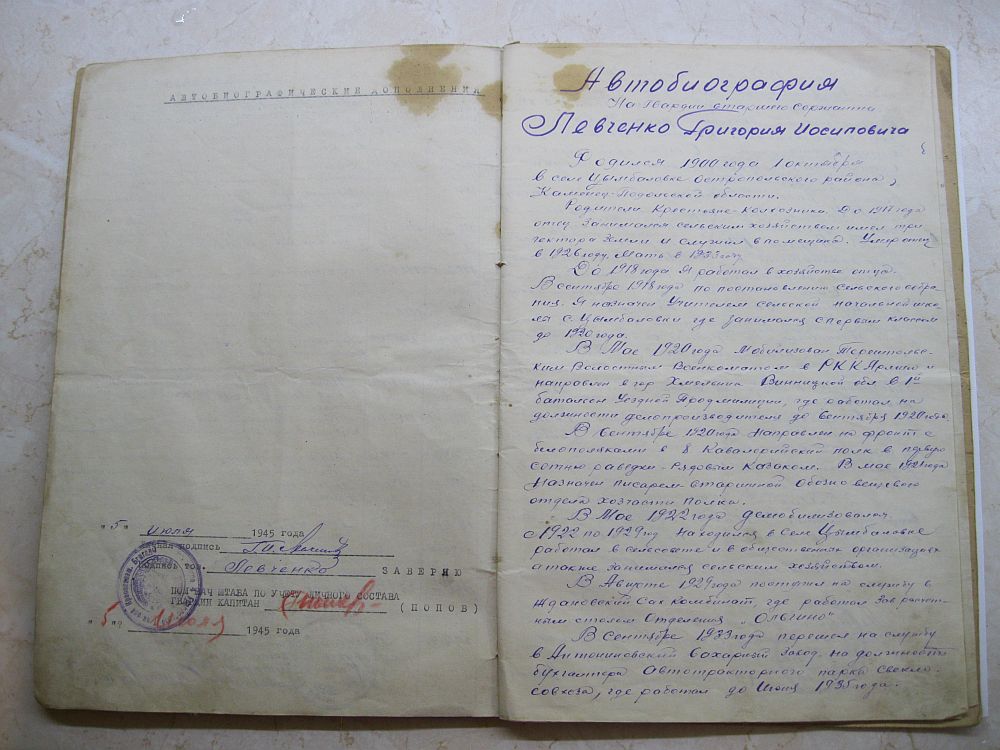 АВТОБИОГРАФИЧЕСКИЕ ДОПОЛНЕНИЯ
"5" июля 1945 года
подпись
подпись тов. Левченко ЗАВЕРЯЮ
ПОМ НАЧ ШТАБА ПО УЧЕТУ ЛИЧНОГО СОСТАВА
ГВАРДИИ КАПИТАН (ПОПОВ)
"5" июля 1945 года
Автобиография
На Гвардии старшего сержанта
Левченко Григория Иосиповича
Родился 1900 года 1 октября
в селе Цымбаловке Остропольского района,
Каменец-Подольской области.
Родители Крестьяне-Колхозники. До 1917 года
отец занимался сельским хозяйством имел три
гектора земли и служил в помещика. Умер отец
в 1926 году, Мать в 1933 году
До 1918 года Я работал в хозяйстве отца.
В сентябре 1918 года по постановлению сельского собра-
ния. Я назначен Учителем сельской начальной шко-
лы с. Цымбаловки где занимался с первым классом
до 1920 года.
В Мае 1920 года Мобилизован
Волостным Военкоматом в РККАрмию и
направлен в гор Хмельник Винницкой обл в 1й
баталеон Уездной где работал на
должности делопроизводителя до Сентября 1920 года.
В Сентябре 1920 года Направлен на фронт с
белополяками в 8 Кавалерийский полк в первую
сотню разведки-Рядовым Казаком. В мае 1921 года
Назначен писарем старшиной Обозно вещевого
отдела хозчасти полка.
В Мае 1922 года демобилизовался.
С 1922 по 1929 год Находился в Селе Цымбаловке
работал в сельсовете и в общественных организациях
а также занимался сельским хозяйством.
В Августе 1929 года поступил на службу в
Ждановский Сах Комбинат, где работал Зав расчет-
ным столом Отделения „Ольгино"
В Сентябре 1933 года перешел на службу
в Антониновский сахарный Завод на должность
бухгалтера Автотракторного парка Свекло-
совхоза, где работал до Июня 1935 года.